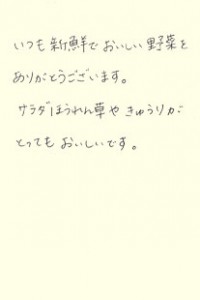 いつも新鮮でおいしい野菜を
ありがとうございます。
サラダほうれん草やきゅうりが
とってもおいしいです。